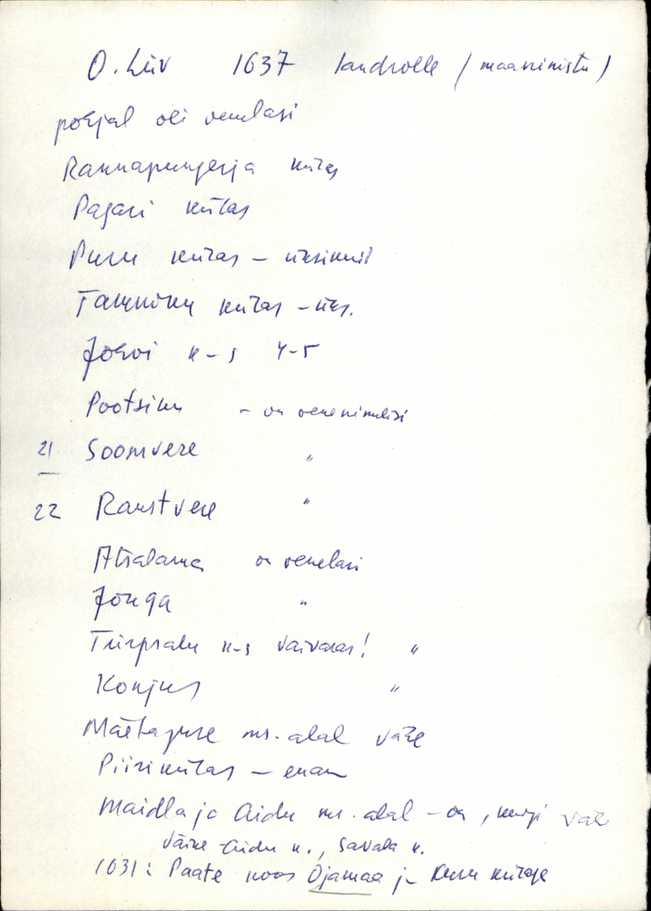 O. Liiv 1637 landrolle (maanimistu)
põhjal oli venelasi
Rannapungerja külas
Pagari külas
Puru külas – üksikuid
Tammiku külas – üks.
Jõhvi k-s 4-5
Pootsiku – on venenimelisi
21 Soomvere "
22 Raustvere "
Atsalama on venelasi
Jõuga "
Türpsalu k-s Vaivaras! "
Konjus "
Mäetaguse ms. alal vähe
Piiri külas – enam
Maidla ja Aidu ms. alal – on, kuigi väh
Väike-Aidu k., Savala k.
1631: Paate koos Ojamaa ja külaga